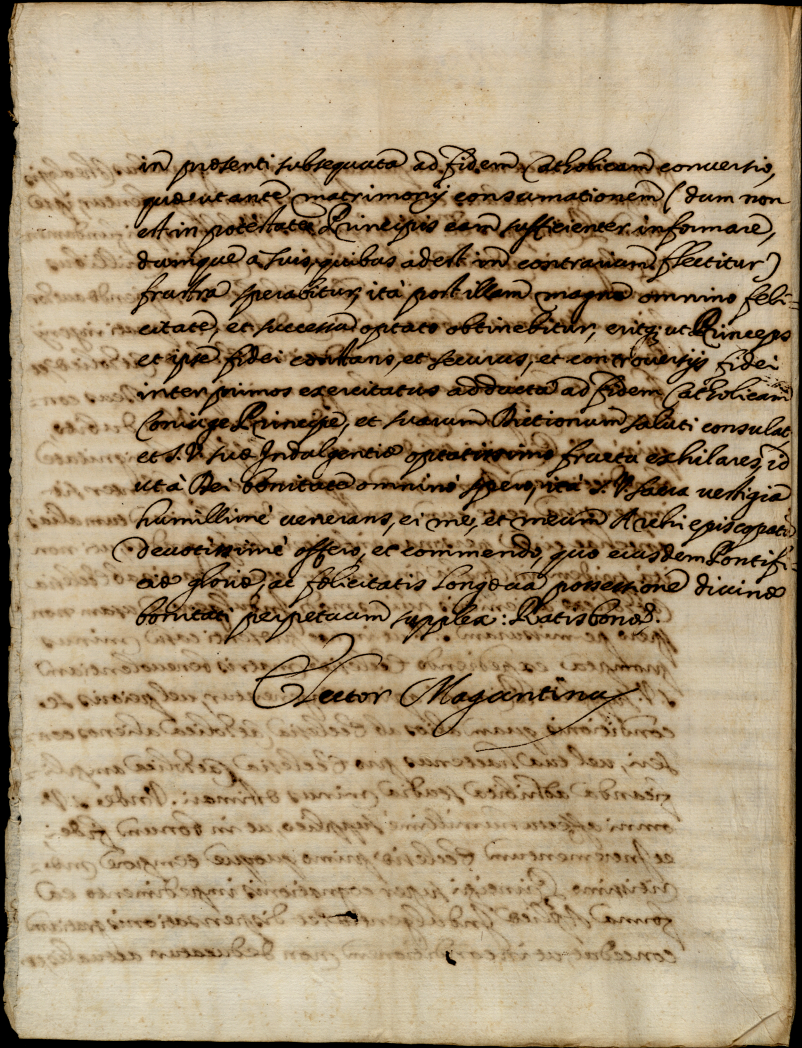 in præsenti subsequuta ad fidem Catholicam conversio,
quæ ut ante matrimonij consumationem (dum non
est in potestate Principis eam sufficienter informare,
dumque a suis, quibus adest in contrarium flectitur)
frustra sperabitur, ità post illam magna omnino feli-
citate, et successu optato obtinebitur, eritq; ut Princeps
et ipse fidei constans, et securus, et controversijs fidei
inter primos exercitatus adducta ad fidem Catholicam
Coniuge Principe, et suarum Ditionum saluti consulat
et S. V. suæ Indulgentiæ optatissimo fructu exhilaret, id
ut à Dei bonitate omnino spero, ità S. V. sacra vestigia
humillimè venerans, ei me, et meum Archiepiscopatū
Devotissimè offero, et commendo, quo eiusdem Pontifi-
ciæ gloriæ, ac felicitatis longæva possessione divinæ
bonitati perpetuum supplex: Ratisbonæ.
Elector Moguntinus